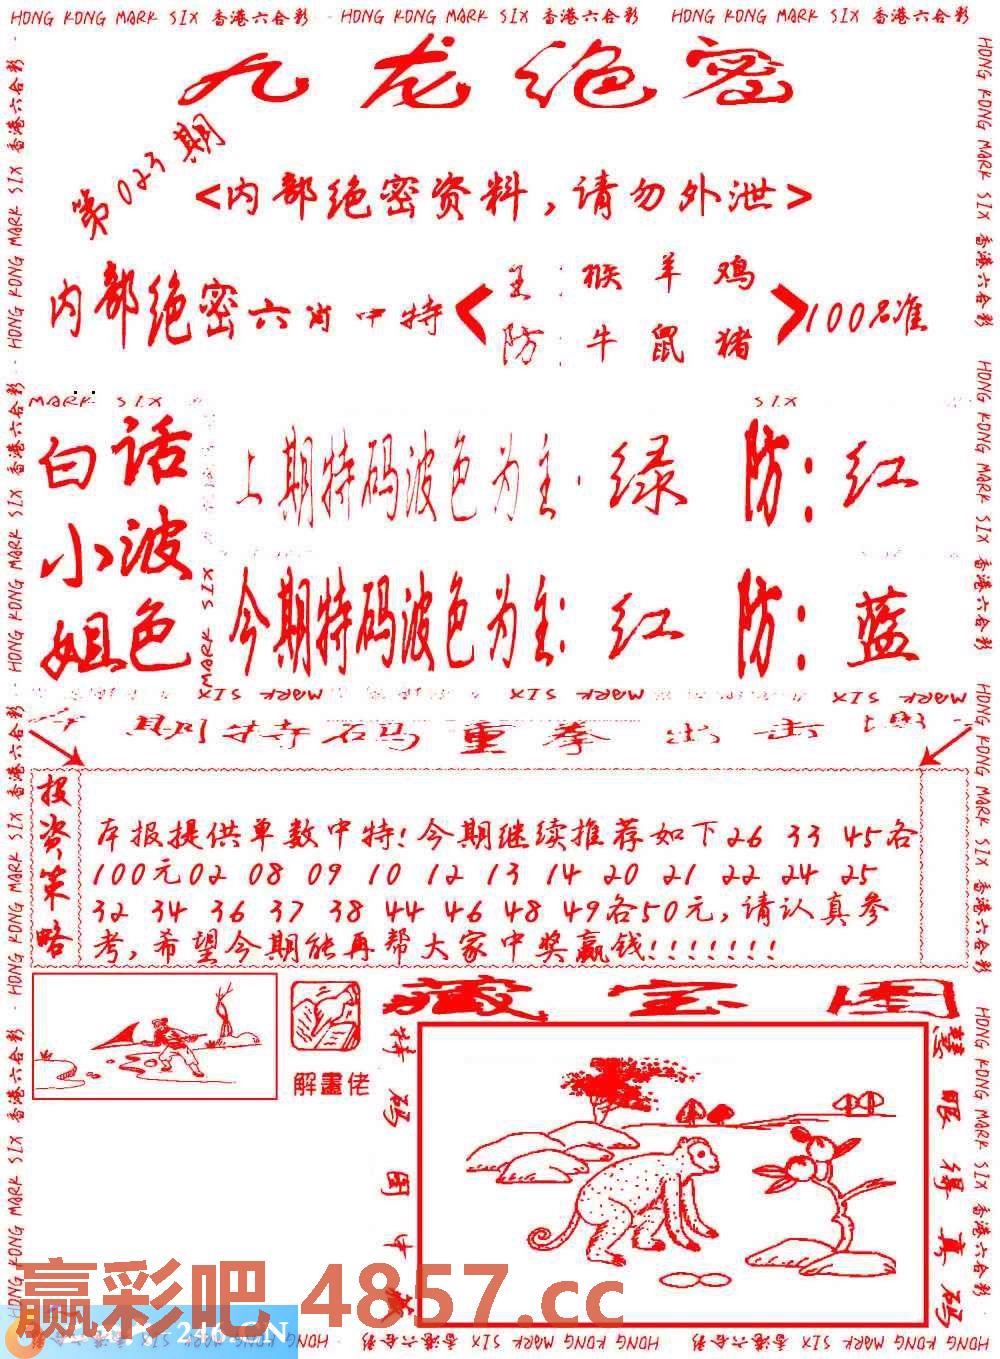 HONG KONG MARK SIX 香港六合彩 HONG KONG MARK SIX 香港六合彩 HONG KONG MARK SIX 香港六合彩
九龙绝密
第023期
<内部绝密资料,请勿外泄>
内部绝密六肖中特
主:猴羊鸡
防:牛鼠猪
100%准
MARK SIX SIX
白话
小波
姐色
上期特码波色为主:绿 防:红
今期特码波色为主:红 防:蓝
MARK SIX
MARK SIX MARK SIX MARK SIX
期特码重拳出击
投资策略
本报提供单数中特!今期继续推荐如下26 33 45各
100元02 08 09 10 12 13 14 20 21 22 24 25
32 34 36 37 38 44 46 48 49各50元,请认真参
考,希望今期能再帮大家中奖赢钱!!!!!!!
解畫佬
藏宝图
特码图中藏
慧眼得真码
赢彩吧 4857.cc
246.CN
HONG KONG MARK SIX 香港六合彩
HONG KONG MARK SIX 香港六合彩